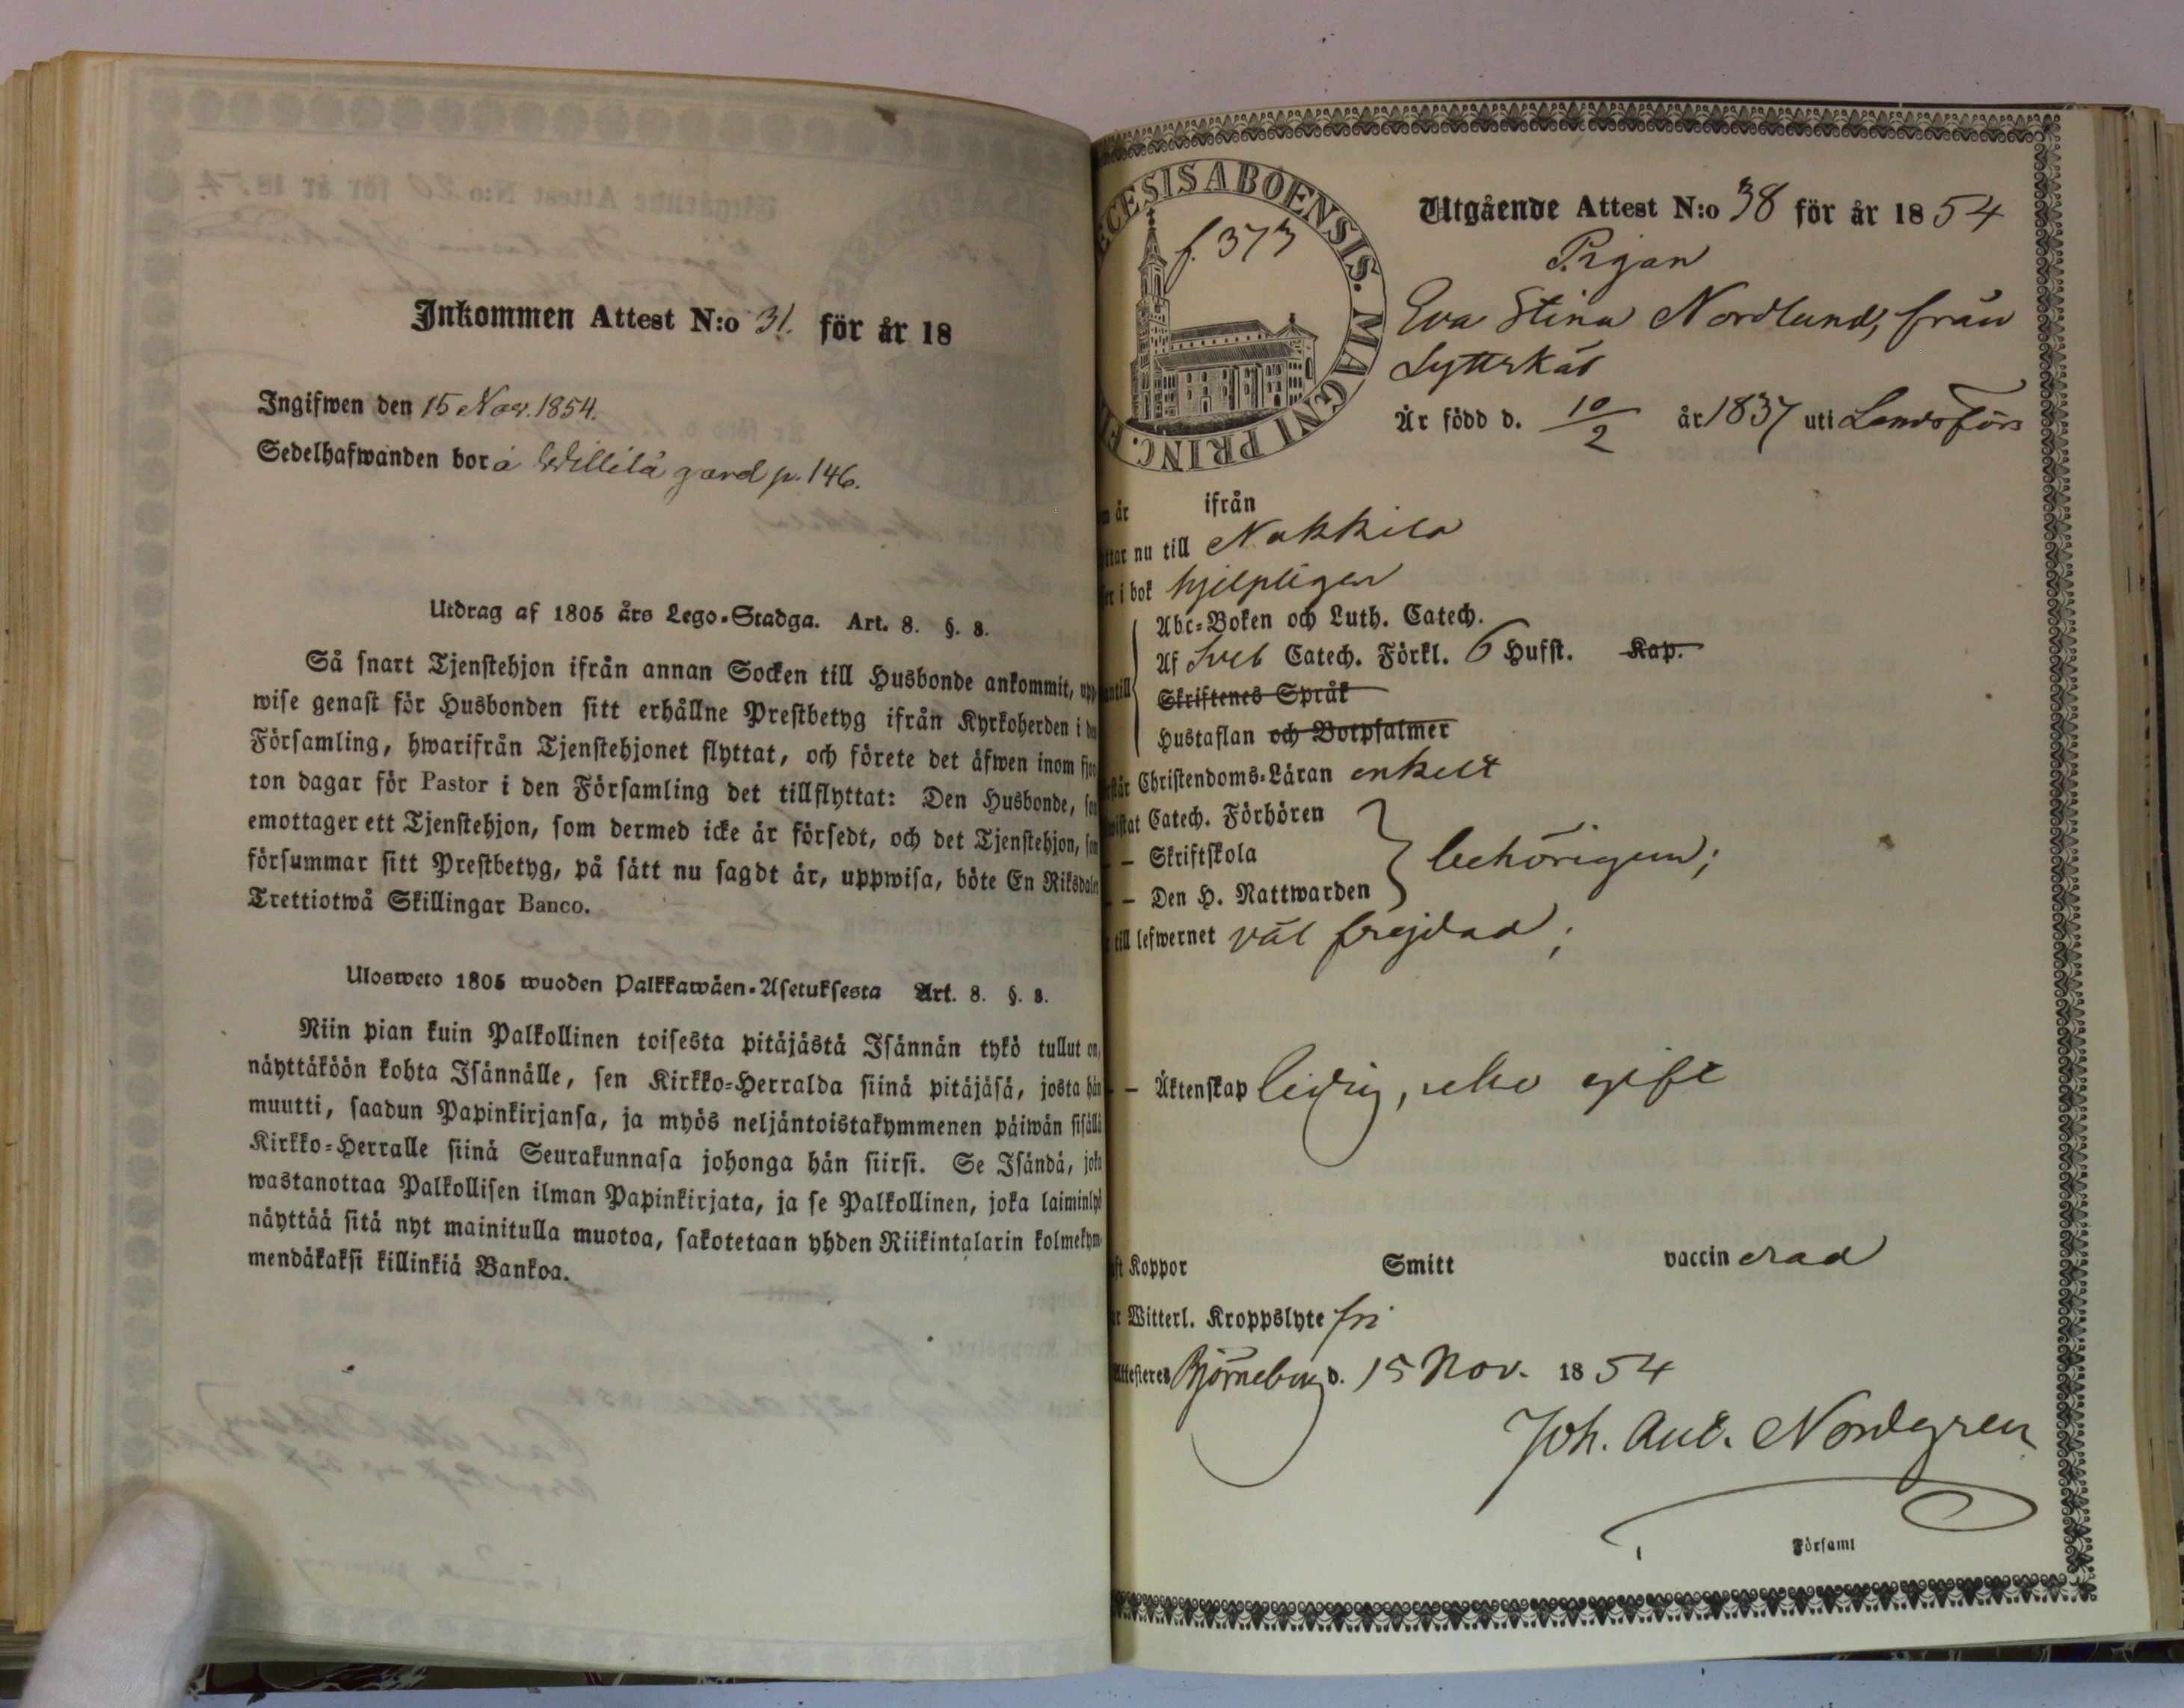 Inkommen Attest N:o 31. för år 18
Ingifwen den 15 Nov. 1854.
Sedelhafwanden bor å Willilä gård p. 146.
Utdrag af 1805 års Lego-Stadga. Art. 8. §. 8.
Så snart Tjenstehjon ifrån annan Socken till Husbonde ankommit, upp
wise genast för Husbonden sitt erhållne Prestbetyg ifrån Kyrkoherden i den
Församling, hwarifrån Tjenstehjonet flyttat, och förete det äfwen inom fjor
ton dagar för Pastor i den Församling det tillflyttat: Den Husbonde, som
emottager ett Tjenstehjon, som dermed icke är försedt, och det Tjenstehjon, som
försummar sitt Prestbetyg, på sätt nu sagdt är, uppwisa, böte En Riksdaler
Trettiotwå Skillingar Banco.
Ulosweto 1805 wuoden Palkkawäen-Asetuksesta Art. 8. §. 8.
Niin pian kuin Palkollinen toisesta pitäjästä Isännän tykö tullut on,
näyttäköön kohta Isännälle, sen Kirkko-Herralda siinä pitäjäsä, josta hän
muutti, saadun Papinkirjansa, ja myös neljäntoistakymmenen päiwän sisällä
Kirkko-Herralle siinä Seurakunnasa johonga hän siirsi. Se Isändä, joka
wastanottaa Palkollisen ilman Papinkirjata, ja se Palkollinen, joka laiminlyö
näyttää sitä nyt mainitulla muotoa, sakotetaan yhden Riikintalarin kolmekym-
mendäkaksi killinkiä Bankoa.
ECESIS ABOENSIS. MAGNI PRINC. FI
f. 373
Utgående Attest N:o 38 för år 1854
Pigan
Eva Stina Nordlund, från
Lyttskär
Är född d. 10/2 år 1837 uti Landsförs
år ifrån
ttar nu till Nakkila
i bok hjelpligen
Abc-Boken och Luth. Catech.
Af Sveb Catech. Förkl. 6 Hufst. Kap.
antill
Skriftenes Språk
Hustaflan och Botpsalmer
står Christendoms-Läran enkelt
wistat Catech. Förhören
– Skriftskola
behörigen;
– Den H. Nattwarden
till lefwernet väl frejdad;
– Äktenskap ledig, icke gift
ft Koppor Smitt vaccinerad
Witterl. Kroppslyte fri
Attesteres Björneborg d. 15 Nov. 1854
Joh. Aut. Nordgren
Församl